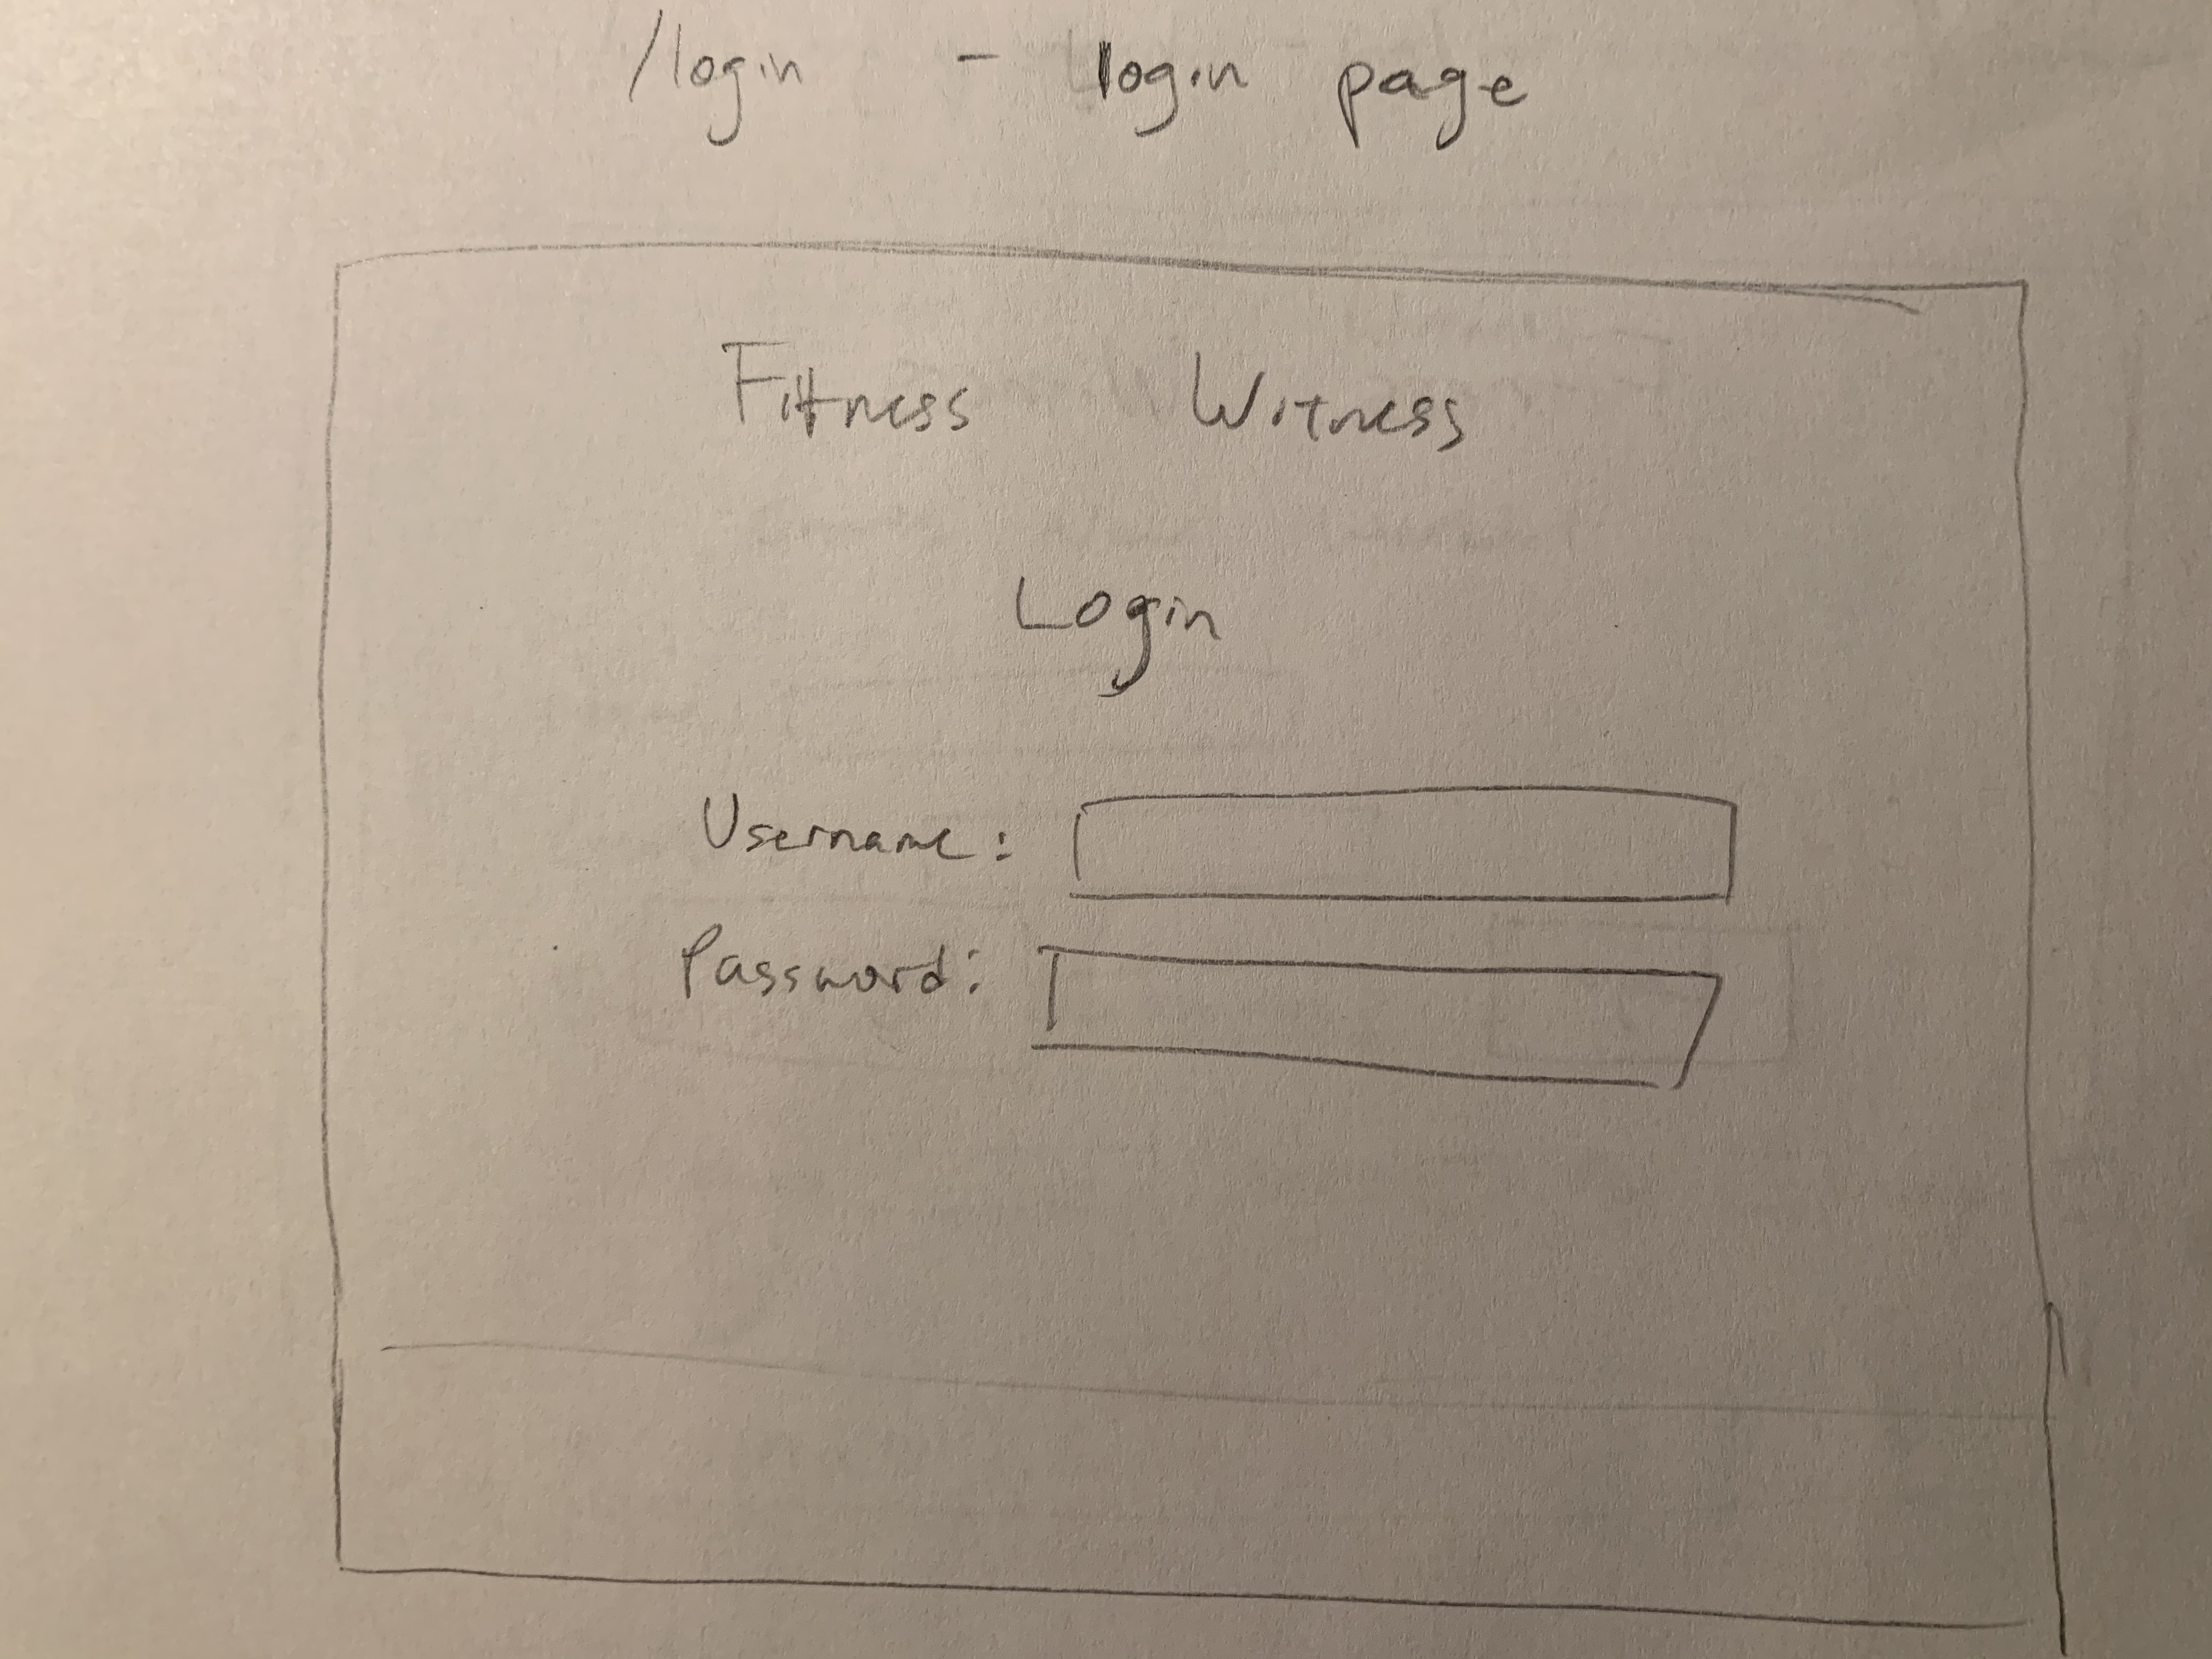 /login - login page
Fitness Witness
Login
Username:
Password: